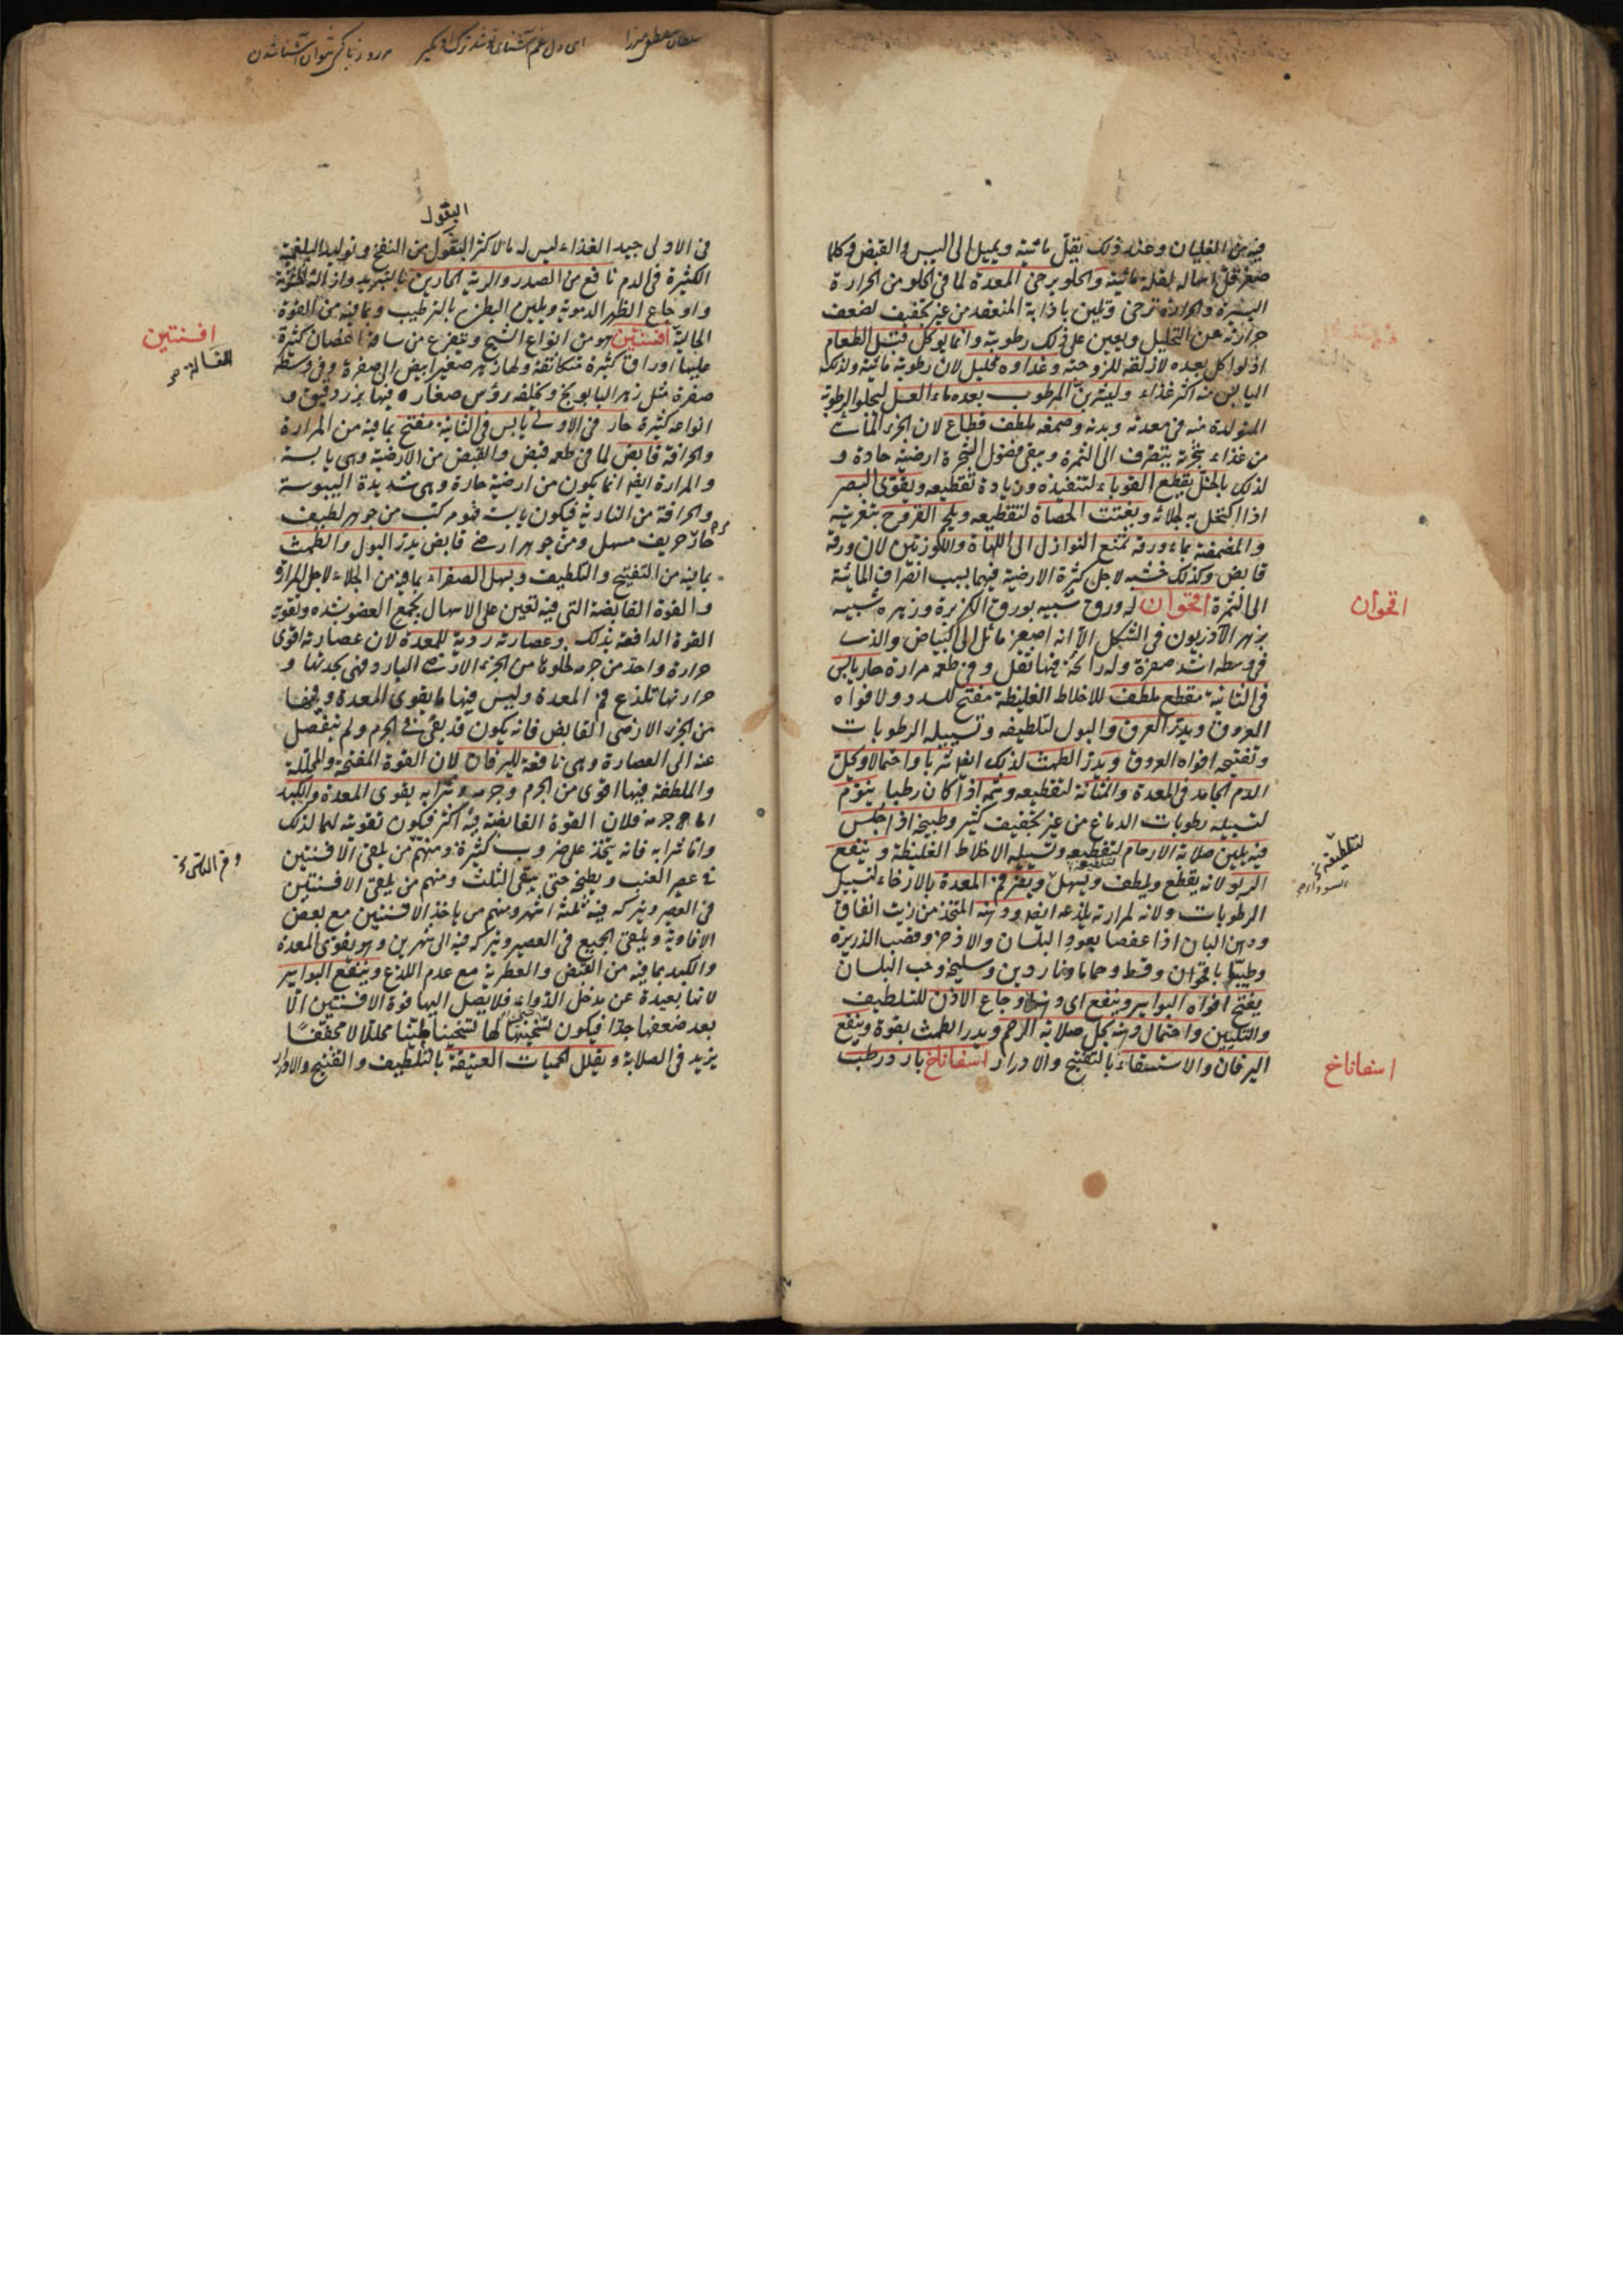 فيه من الغليان وعند ذلك يقل مائيته ويميل الى اليبس والقبض وكلما
صغر قل اسهاله لقلة مائيته والحلو يرخى المعدة لما فى الحلو من الحرارة
اليسيرة والحرارة ترخى وتلين باذابة المنعقد من غير تجفيف لضعف
حرارته عن التحليل ويعين على ذلك رطوبته وانما يوكل قبل الطعام
اذ لو اكل بعده لازلقه للزوجته وغذاوه قليل لان رطوبته مائية ولذلك
اليابس منه اكثر غذاء وليشرب المرطوب بعده ماء العسل ليجلو الرطوبة
المتولدة منه فى معدته وبدنه وصمغه ملطف قطاع لان الجزء المائى
من غذاء شجرته يتصرف الى الثمرة ويبقى فضول الشجرة ارضية حادة و
لذلك بالخل يقطع القوباء لتنفيذه وزيادة تقطيعه ويقوى البصر
اذا اكتحل به لجلائه ويفتت الحصاة لتقطيعه ويلحم القروح بتغريته
والمضمضة بماء ورقه تمنع النوازل الى اللهاة واللوزتين لان ورقه
قابض وكذلك خشبه لاجل كثرة الارضية فيهما بسبب انصراف المائية
الى الثمرة اقحوان له ورق شبيه بورق الكزبرة وزهره شبيه
بزهر الآذريون فى الشكل الا انه اصغر مائل الى البياض والذى
فى وسطه اشد صفرة وله رائحة فيها ثقل وفى طعمه مرارة حار يابس
فى الثانية مقطع ملطف للاخلاط الغليظة مفتح للسدد ولافواه
العروق ويدر العرق والبول لتلطيفه وتسييله الرطوبات
وتفتيحه افواه العروق ويدر الطمث لذلك ايضا شربا واحتمالا ويحل
الدم الجامد فى المعدة والمثانة لتقطيعه وشمه اذا كان رطبا ينوم
لتسييله رطوبات الدماغ من غير تجفيف كثير وطبيخه اذا جلس
فيه يلين صلابة الارحام لتقطيعه وتسييله الاخلاط الغليظة وينفع
الربو لانه يقطع ويلطف ويسهل ويضر فم المعدة بالارخاء لتسييل
الرطوبات ولانه لمرارته يلذعه ايضا ودهنه المتخذ من زيت انفاق
ودهن البان اذا عفصا بعود البلسان والاذخر وقصب الذريرة
وطيبا باقحوان وقسط وحماما وناردين وسليخة وحب البلسان
يفتح افواه البواسير وينفع اى دهنه اوجاع الاذن للتلطيف
والتليين واحتمال دهنه يحل صلابة الرحم ويدر الطمث بقوة وينفع
اليرقان والاستسقاء بالتفتيح والادرار اسفاناخ بارد رطب
اقحوان
اسفاناخ
البقول
فى الاولى جيد الغذاء ليس له ما لاكثر البقول من النفخ وتوليد البلغمية
الكثيرة فى الدم نافع من الصدر والرية الحارين بالتبريد وازالة الخشونة
واوجاع الظهر الدموية ويلين البطن بالترطيب وبما فيه من القوة
الجالية افسنتين هو من انواع الشيح ويتفرع من ساقه اغصان كثيرة
عليها اوراق كثيرة متكاثفة ولها زهر صغير ابيض الى صفرة وفى وسطه
صفرة مثل زهر البابونج وتخلفه رؤس صغار فيها بزر دقيق و
انواعه كثيرة حار فى الاولى يابس فى الثانية مفتح بما فيه من المرارة
والحرافة قابض لما فى طعمه قبض والقبض من الارضية وهى يابسة
والمرارة ايضا انما يكون من ارضية حارة وهى شديدة اليبوسة
والحرافة من النارية فيكون يابسة فهو مركب من جوهر لطيف
حار حريف مسهل ومن جوهر ارضى قابض يدر البول والطمث
بما فيه من التفتيح والتلطيف ويسهل الصفراء بما فيه من الجلاء لاجل المرارة
والقوة القابضة التى فيه تعين على الاسهال بجمع العضو شده وتقوية
القوة الدافعة بذلك وعصارته ردية للمعدة لان عصارته اقوى
حرارة واحد من جرمه لخلوها من الجزء الارضى البارد فهى بحدتها و
حرارتها تلذع فم المعدة وليس فيها ما يقوى المعدة وقبضا
من الجزء الارضى القابض فانه يكون قد بقى فى الجرم ولم ينفصل
عنه الى العصارة وهى نافعة لليرقان لان القوة المفتحة والمحللة
والملطفة فيها اقوى من الجرم وجرمه وشرابه يقوى المعدة والكبد
اما جرمه فلان القوة القابضة فيه اكثر فيكون تقويته لهما لذلك
واما شرابه فانه يتخذ على ضروب كثيرة ومنهم من يلقى الافسنتين
فى عصير العنب ويطبخ حتى يبقى الثلث ومنهم من يلقى الافسنتين
فى العصير ويتركه فيه ثلثة اشهر ومنهم من ياخذ الافسنتين مع بعض
الافاوية ويلقى الجميع فى العصير ويتركه فيه الى شهرين وهو يقوى المعدة
والكبد بما فيه من القبض والعطرية مع عدم اللذع وينفع البواسير
لانها بعيدة عن مدخل الدواء فلا يصل اليها قوة الافسنتين الا
بعد ضعفها جدا فيكون تسخينها لها تسخينا طيبا محللا لا مجففا
يزيد فى الصلابة ويقلل الحميات العتيقة بالتلطيف والتفتيح والادرار
افسنتين